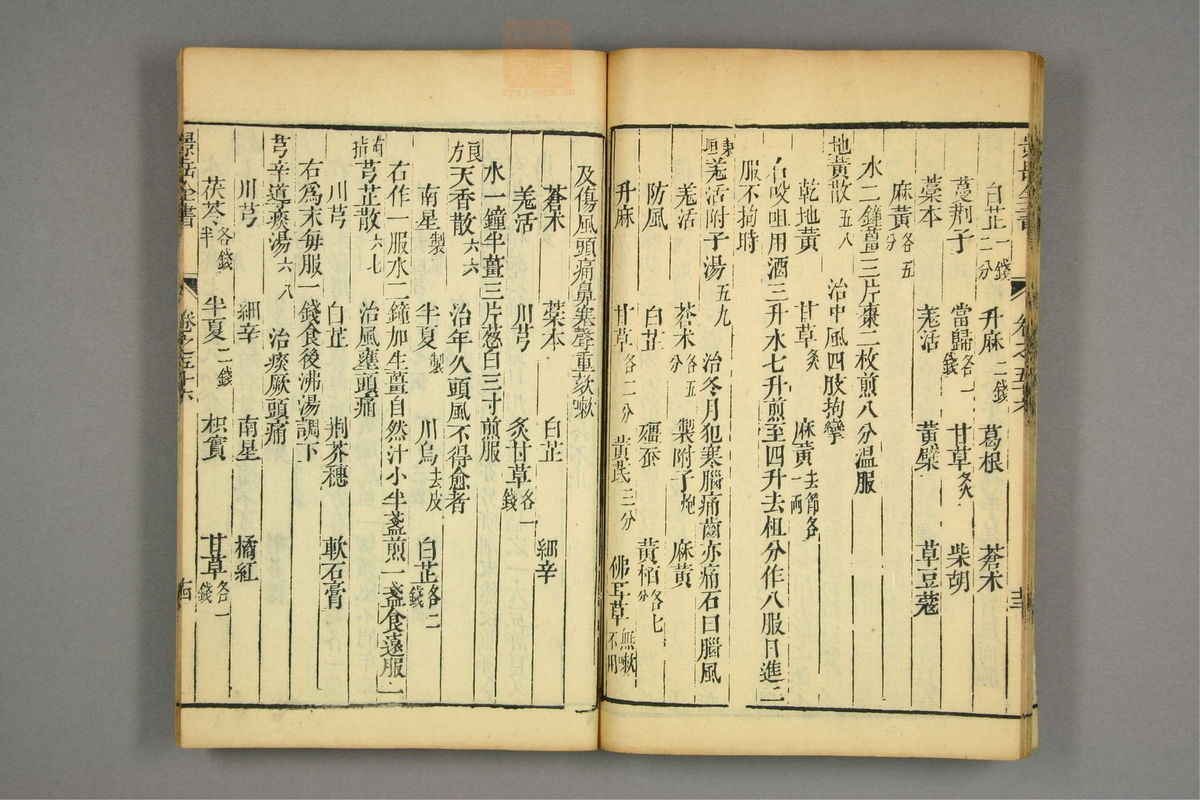 景岳全書
白芷一錢二分 升麻二錢 葛根 蒼朮
蔓荆子 當歸各一錢 甘草炙 柴胡
藁本 羌活 黃檗 草豆蔻
麻黃各五分
水二鐘薑三片棗二枚煎八分温服
地黃散五八 治中風四肢拘攣
乾地黃 甘草炙 麻黃去節各一兩
右㕮咀用酒三升水七升煎至四升去柤分作八服日進二
服不拘時
東垣羌活附子湯五九 治冬月犯寒腦痛齒亦痛名曰腦風
羌活 蒼朮各五分 製附子炮 麻黃
防風 白芷 殭蚕 黃栢各七分
升麻 甘草各二分 黃芪三分 佛耳草無嗽不用
及傷風頭痛鼻塞聲重欬嗽
蒼朮 藁本 白芷 細辛
羌活 川芎 炙甘草各一錢
水一鐘半薑三片葱白三寸煎服
良方天香散六六 治年久頭風不得愈者
南星製 半夏製 川烏去皮 白芷各二錢
右作一服水二鐘加生薑自然汁小半盞煎一盞食遠服
芎芷散六七 治風壅頭痛
川芎 白芷 荆芥穗 軟石膏
右為末每服一錢食後沸湯調下
芎辛導痰湯六八 治痰厥頭痛
川芎 細辛 南星 橘紅
茯苓各錢半 半夏二錢 枳實 甘草各一錢
景岳全書 卷之五十六 十四